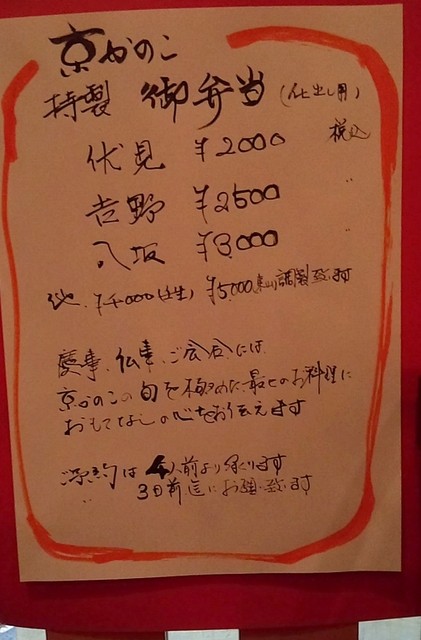 京かのこ
特製 御弁当 (仕出し用)
伏見 ¥2000 税込
吉野 ¥2500 〃
八坂 ¥3,000 〃
他、 ¥5,000 調製致します
慶事、仏事、ご会合には
京かのこの旬を極めた最上のお料理に
おもてなしの心をお伝えします
ご予約は 前より承ります
〃 3日前迄にお願い致します